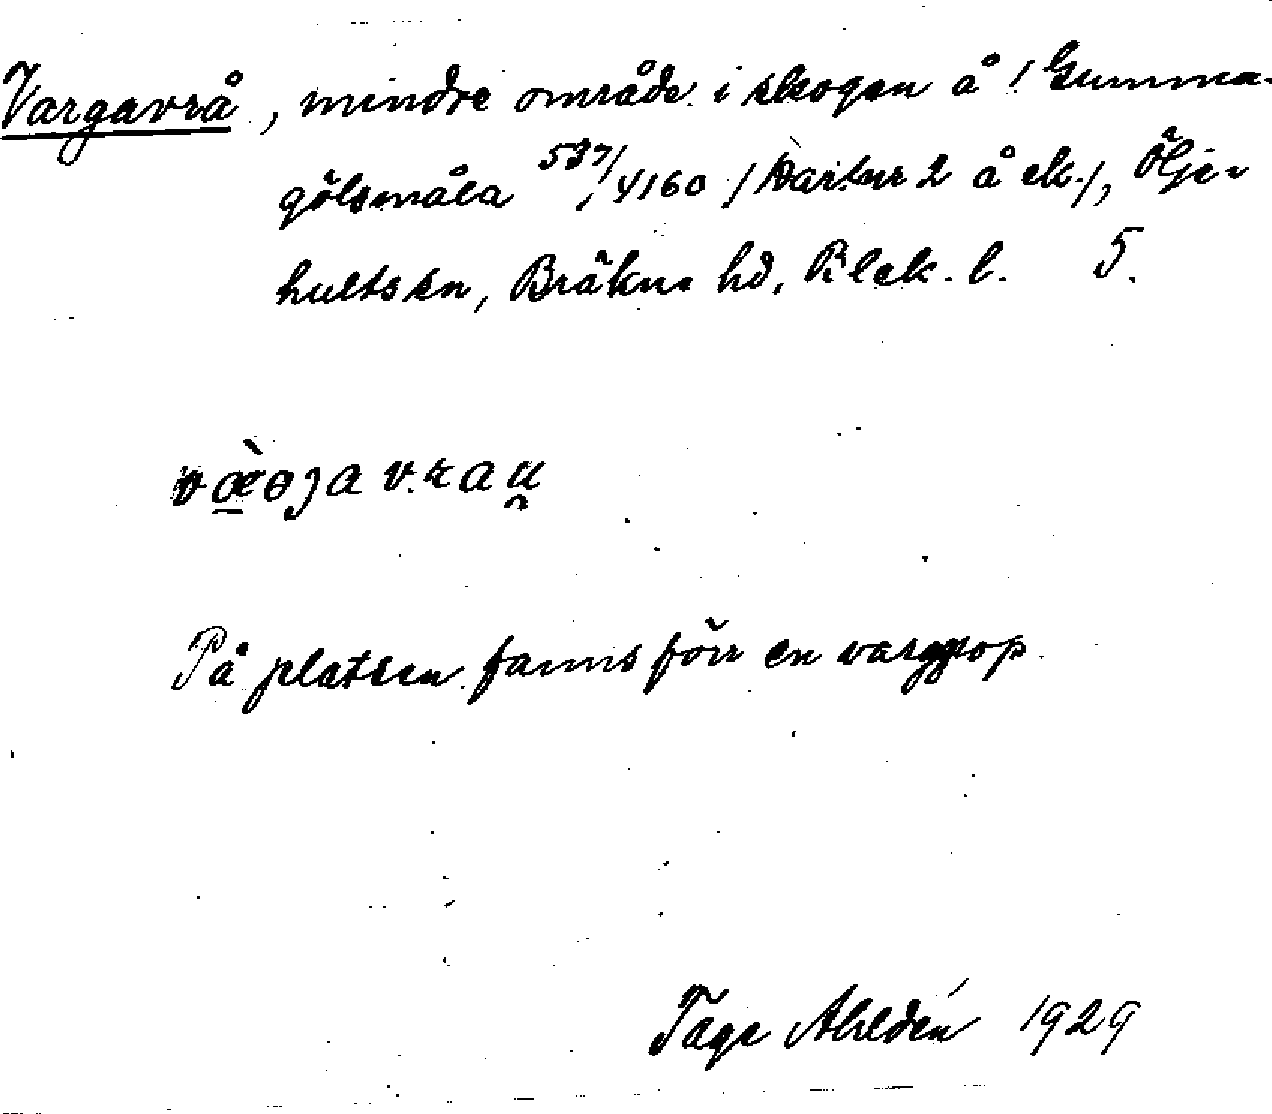 Vargavrå, mindre område i skogen å 1 Gumma-
gölsmåla 537/4160 / Kartnr 2 å ek./, Öljе-
hults sn, Bräkne hd, Blek. l. 5.
På platsen fanns förr en varggrop.
Tage Ahldén 1929